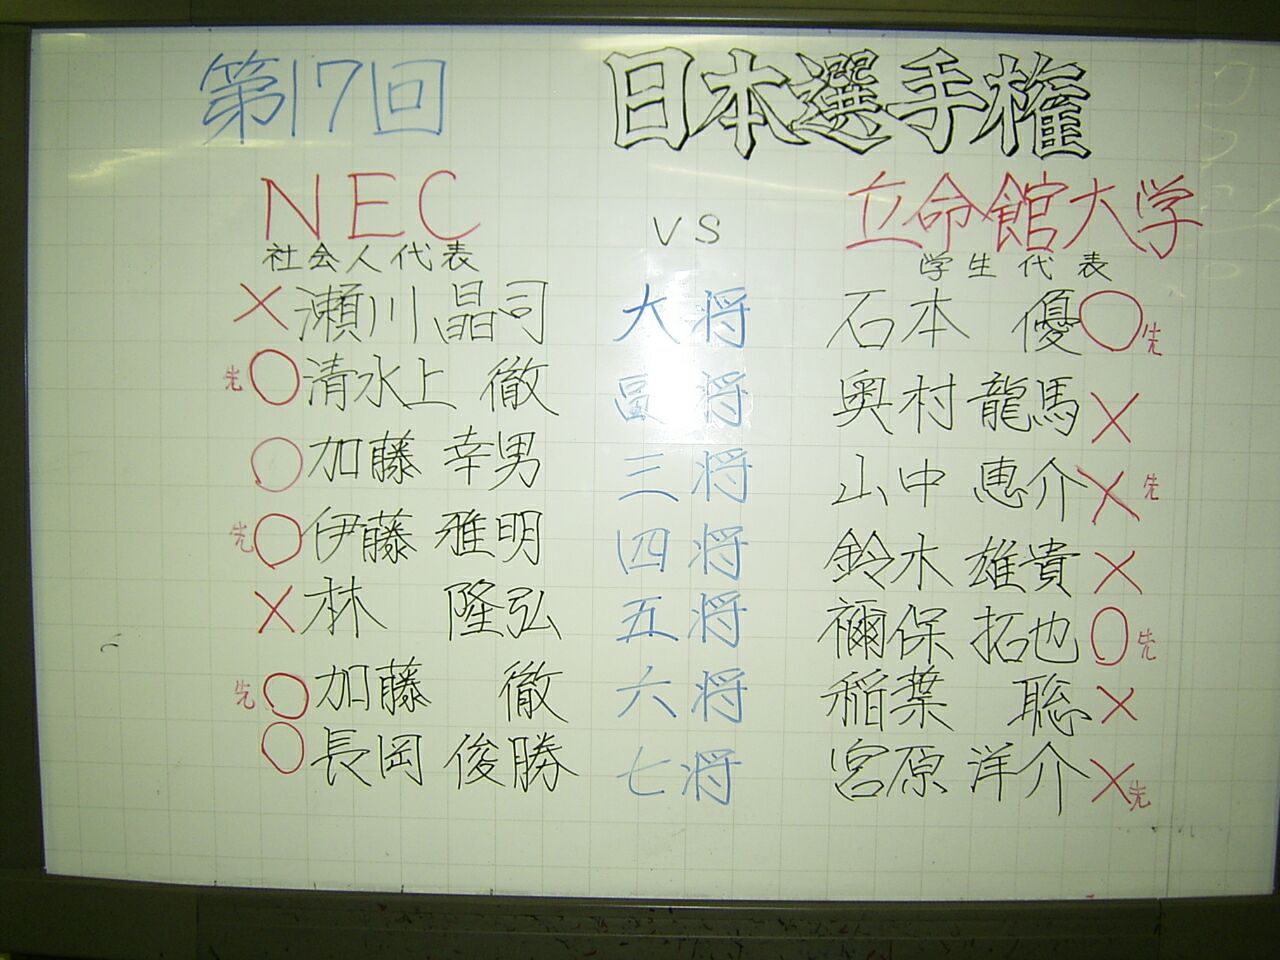 第17回 日本選手権
NEC VS 立命館大学
社会人代表 学生代表
× 瀬川晶司 大将 石本 優 ○ 先
先 ○ 清水上 徹 副将 奥村 龍馬 ×
○ 加藤 幸男 三将 山中 恵介 × 先
先 ○ 伊藤 雅明 四将 鈴木 雄貴 ×
× 林 隆弘 五将 禰保 拓也 ○ 先
先 ○ 加藤 徹 六将 稲葉 聡 ×
○ 長岡 俊勝 七将 宮原 洋介 × 先